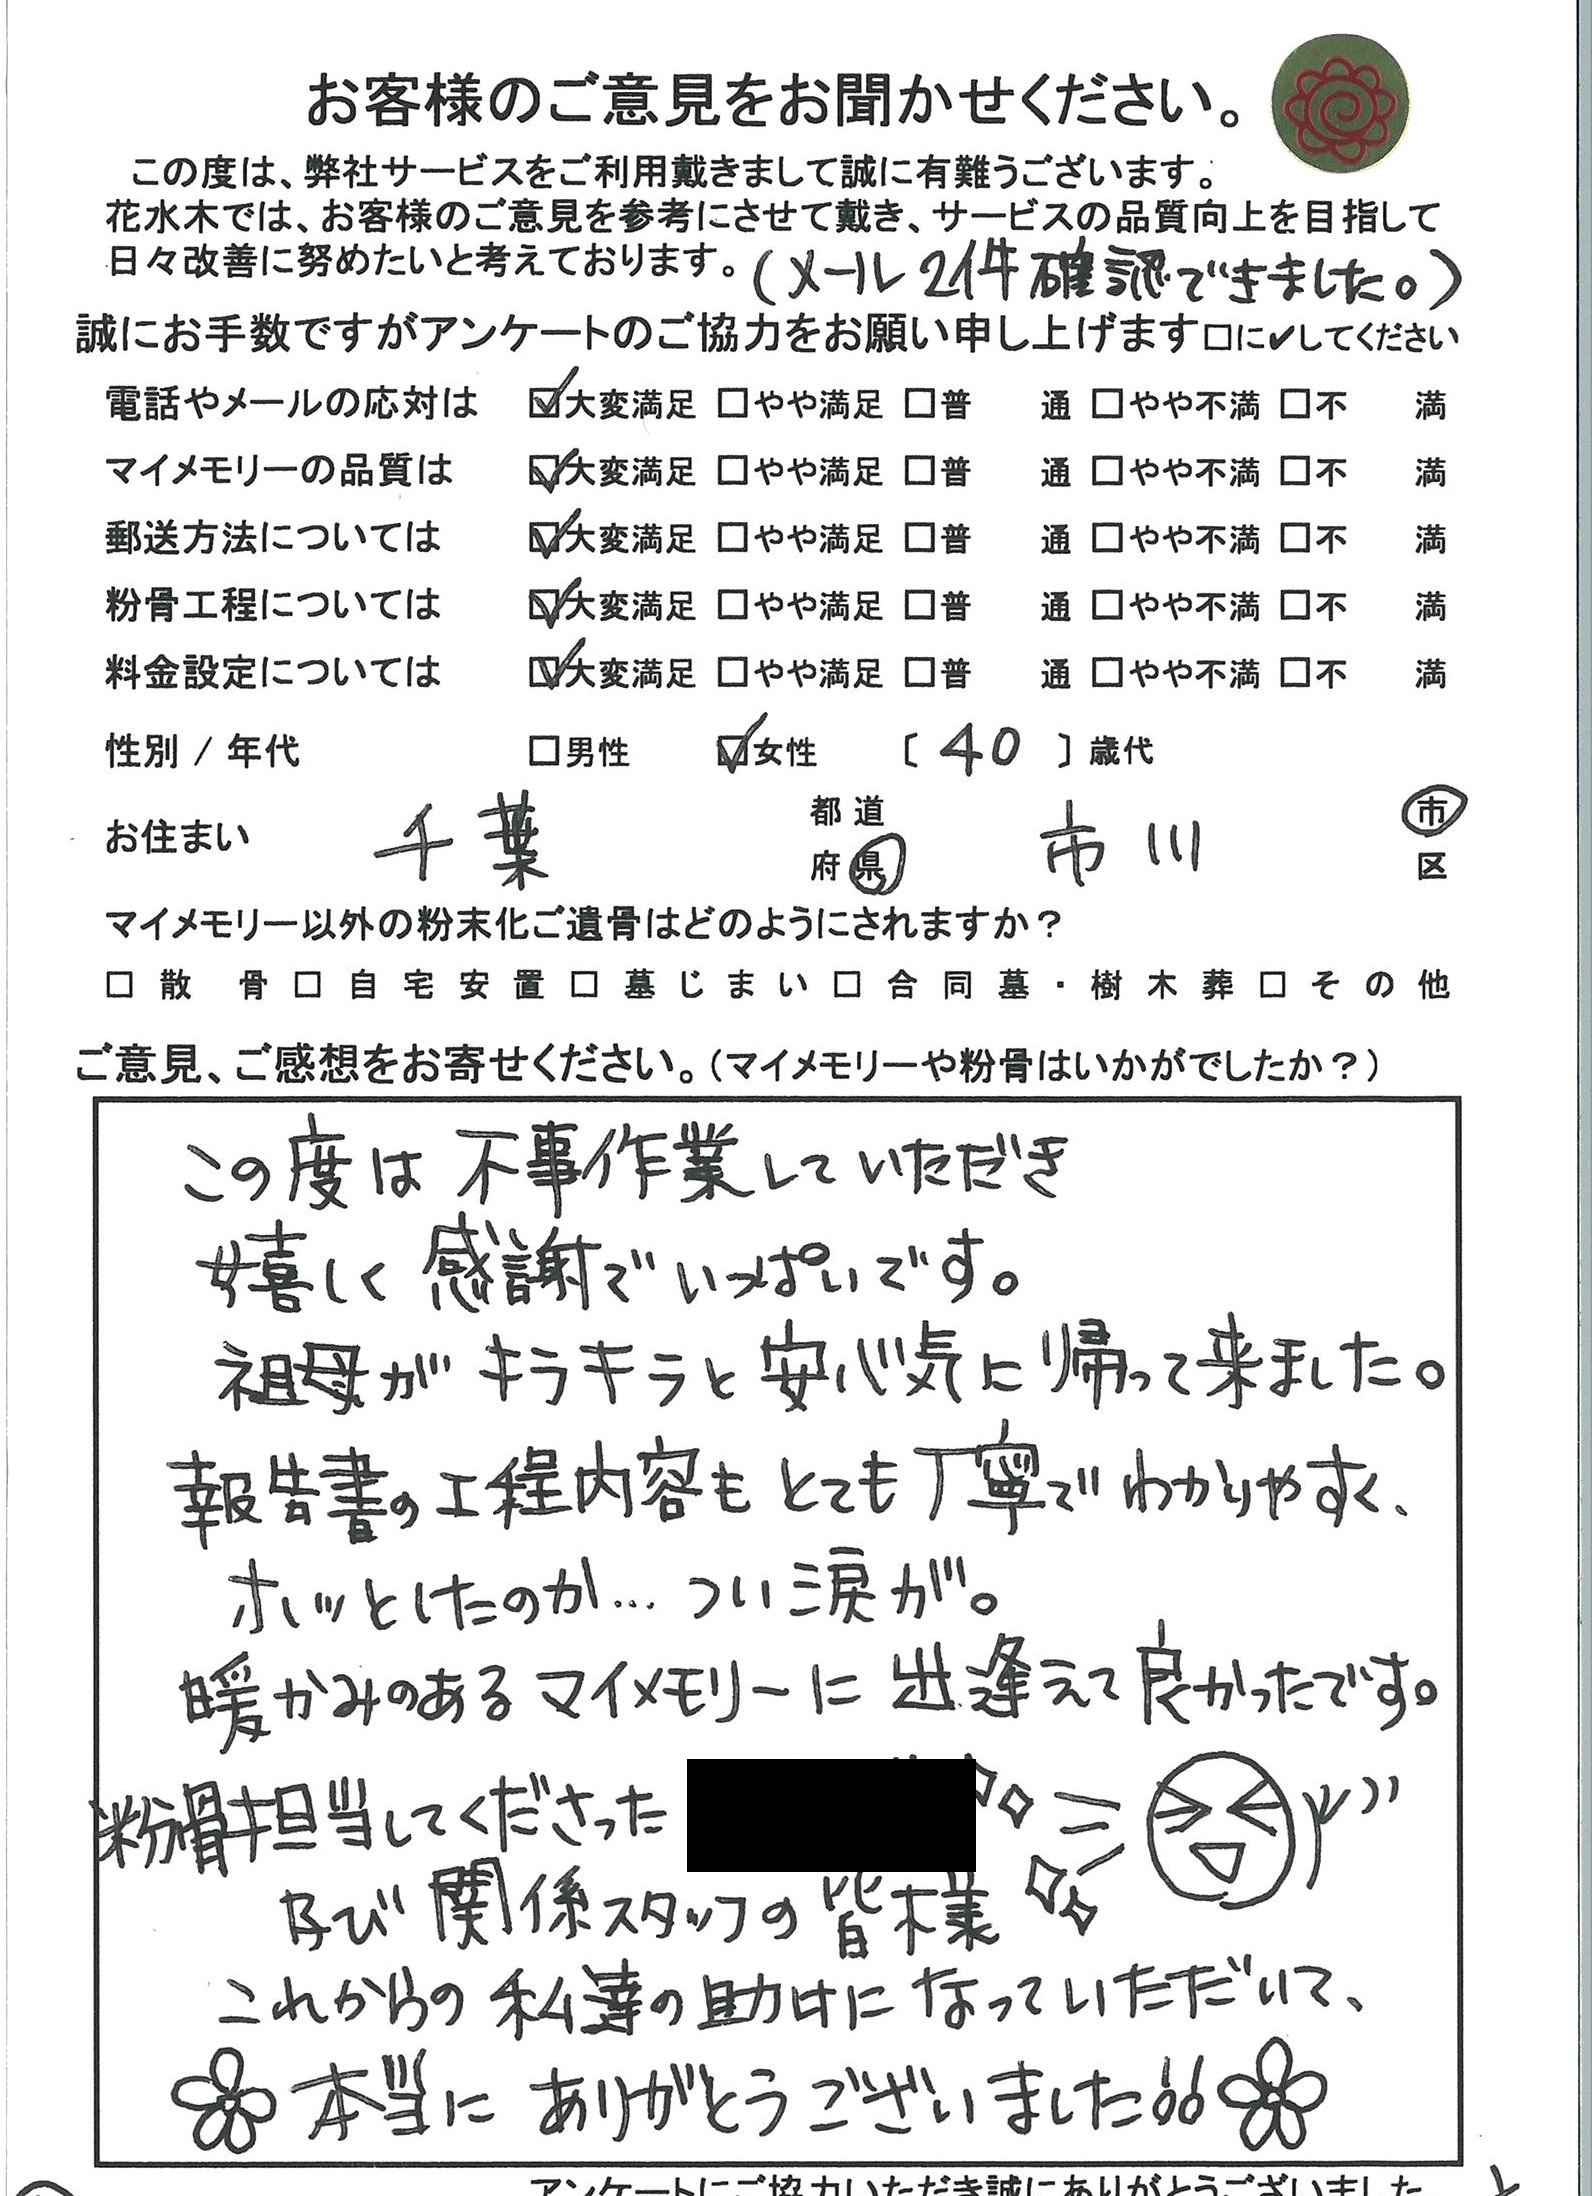 お客様のご意見をお聞かせください。
この度は、弊社サービスをご利用戴きまして誠に有難うございます。
花水木では、お客様のご意見を参考にさせて戴き、サービスの品質向上を目指して
日々改善に努めたいと考えております。(メール2件確認できました。)
誠にお手数ですがアンケートのご協力をお願い申し上げます□に✔してください
電話やメールの応対は ☑大変満足 □やや満足 □普 通 □やや不満 □不 満
マイメモリーの品質は ☑大変満足 □やや満足 □普 通 □やや不満 □不 満
郵送方法については ☑大変満足 □やや満足 □普 通 □やや不満 □不 満
粉骨工程については ☑大変満足 □やや満足 □普 通 □やや不満 □不 満
料金設定については ☑大変満足 □やや満足 □普 通 □やや不満 □不 満
性別 / 年代 □男性 ☑女性 〔 40 〕歳代
お住まい 千葉 都道府県 市川 市区
マイメモリー以外の粉末化ご遺骨はどのようにされますか?
□散骨 □自宅安置 □墓じまい □合同墓・樹木葬 □その他
ご意見、ご感想をお寄せください。(マイメモリーや粉骨はいかがでしたか?)
この度は不事作業していただき
嬉しく感謝でいっぱいです。
祖母がキラキラと安心気に帰って来ました。
報告書の工程内容もとても丁寧でわかりやすく、
ホッとしたのか…つい涙が。
暖かみのあるマイメモリーに出逢えて良かったです。
粉骨担当してくださった
及び関係スタッフの皆様
これからの私達の助けになっていただいて、
本当にありがとうございました!!
アンケートにご協力いただき誠にありがとうございました。